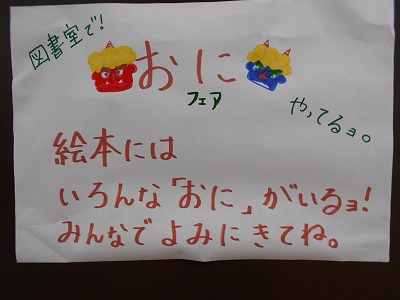 図書室で!
おに
フェア
やってるョ。
絵本には
いろんな「おに」がいるョ!
みんなでよみにきてね。